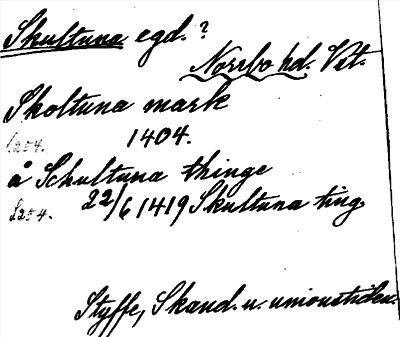 Skultuna egd.?
Norrbo hd. Vst.
Skoltuna mark
1404.
å Schultuna thinge
22/6 1419 Skultuna ting
S254.
Styffe, Skand. u. unionstiden.